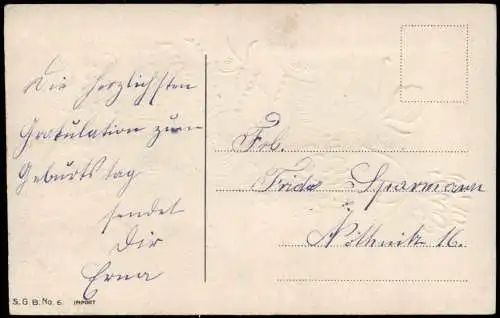 Die herzlichsten
Gratulation zum
Geburtstag
sendet
Dir
Erna
Frl.
Frida Sparmann
Nöthnitz 16.
S. G. B. No. 6. IMPORT